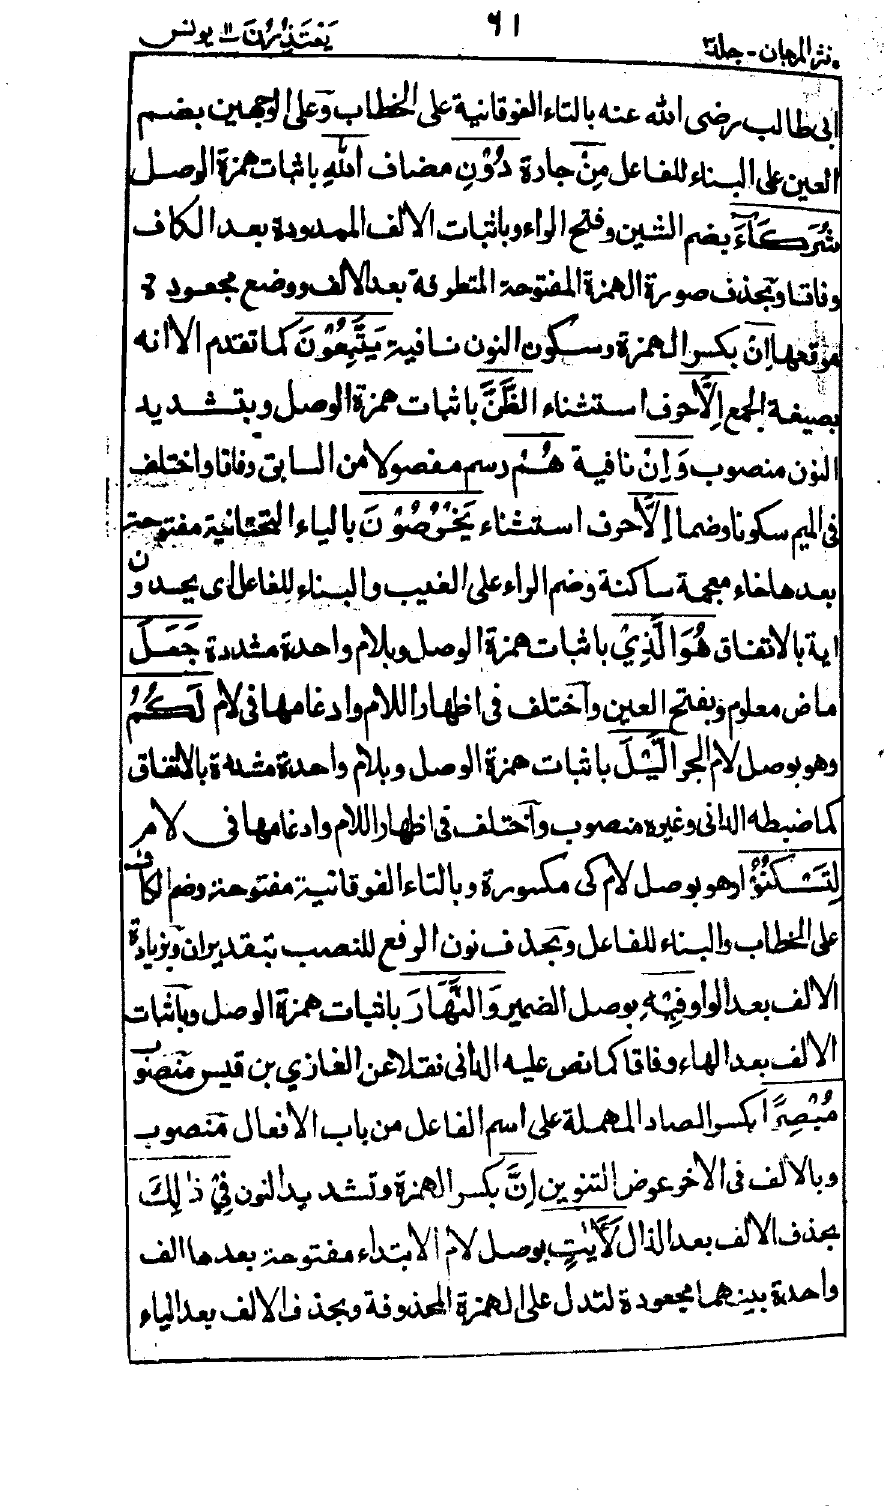 نثر المرجان - جلد ٣ ٦١ يَعْتَذِرُوْنَ ١١ يونس
ابى طالب رضى الله عنه بالتاء الفوقانية على الخطاب وعلى الوجهين بضم
العين على البناء للفاعل مِنْ جارة دُوْنِ مضاف اللهِ باثبات همزة الوصل
شُرَكَآءَ بضم الشين وفتح الراء وباثبات الالف الممدودة بعد الكاف
وفاقا وبحذف صورة الهمزة المفتوحة المتطرفة بعد الالف ووضع مجعودة
موقعها اِنْ بكسر الهمزة وسكون النون نافية يَتَّبِعُوْنَ كما تقدم الا انه
بصيغة الجمع اِلَّا حرف استثناء الظَّنَّ باثبات همزة الوصل وبتشديد
النون منصوب وَاِنْ نافية هُمْ رسم مفصولا من السابق وفاقا واختلف
فى الميم سكونا وضما اِلَّا حرف استثناء يَخْرُصُوْنَ بالياء التحتانية مفتوحة
بعدها خاء معجمة ساكنة وضم الراء على الغيب والبناء للفاعل اى يحدون
اية بالاتفاق هُوَ الَّذِيْ باثبات همزة الوصل وبلام واحدة مشددة جَعَلَ
ماض معلوم وبفتح العين واختلف فى اظهار اللام وادغامها فى لام لَكُمُ
وهو بوصل لام الجر الَّيْلَ باثبات همزة الوصل وبلام واحدة مشددة بالاتفاق
كما ضبطه الدانى وغيره منصوب واختلف فى اظهار اللام وادغامها فى لام
لِتَسْكُنُوْا وهو بوصل لام كى مكسورة وبالتاء الفوقانية مفتوحة وضم الكاف
على الخطاب والبناء للفاعل وبحذف نون الرفع للنصب بتقدير ان وبزيادة
الالف بعد الواو فِيْهِ بوصل الضمير وَالنَّهَارَ باثبات همزة الوصل وباثبات
الالف بعد الهاء وفاقا كما نص عليه الدانى نقلا عن الغازي بن قيس منصوب
مُبْصِرًا بكسر الصاد المهملة على اسم الفاعل من باب الافعال منصوب
وبالالف فى الاخر عوض التنوين اِنَّ بكسر الهمزة وتشديد النون فِيْ ذٰلِكَ
بحذف الالف بعد الذال لَاٰيٰتٍ بوصل لام الابتداء مفتوحة بعدها الف
واحدة بينهما مجعودة لتدل على الهمزة المحذوفة وبحذف الالف بعد الياء